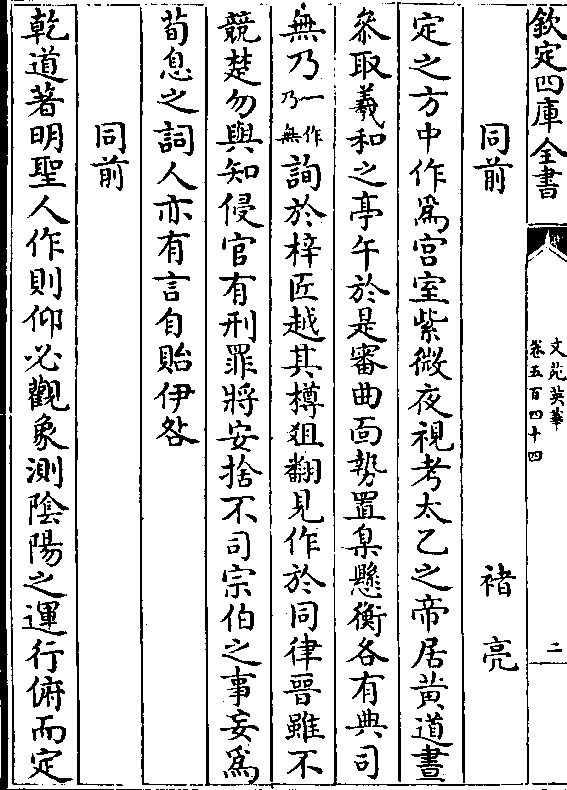 欽定四庫全書
文苑英華
卷五百四十四
二
同前 褚亮
定之方中作爲宫室紫微夜視考太乙之帝居黄道晝
叅取羲和之亭午於是審曲面勢置臬懸衡各有典司
無乃一作乃無詢於梓匠越其樽俎翻見作於同律晉雖不
競楚勿與知侵官有刑罪將安捨不司宗伯之事妄爲
荀息之詞人亦有言自貽伊咎
同前
乾道著明聖人作則仰必觀象測陰陽之運行俯而定